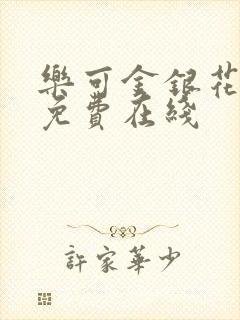 樂可金銀花
免費在綫
許家華少